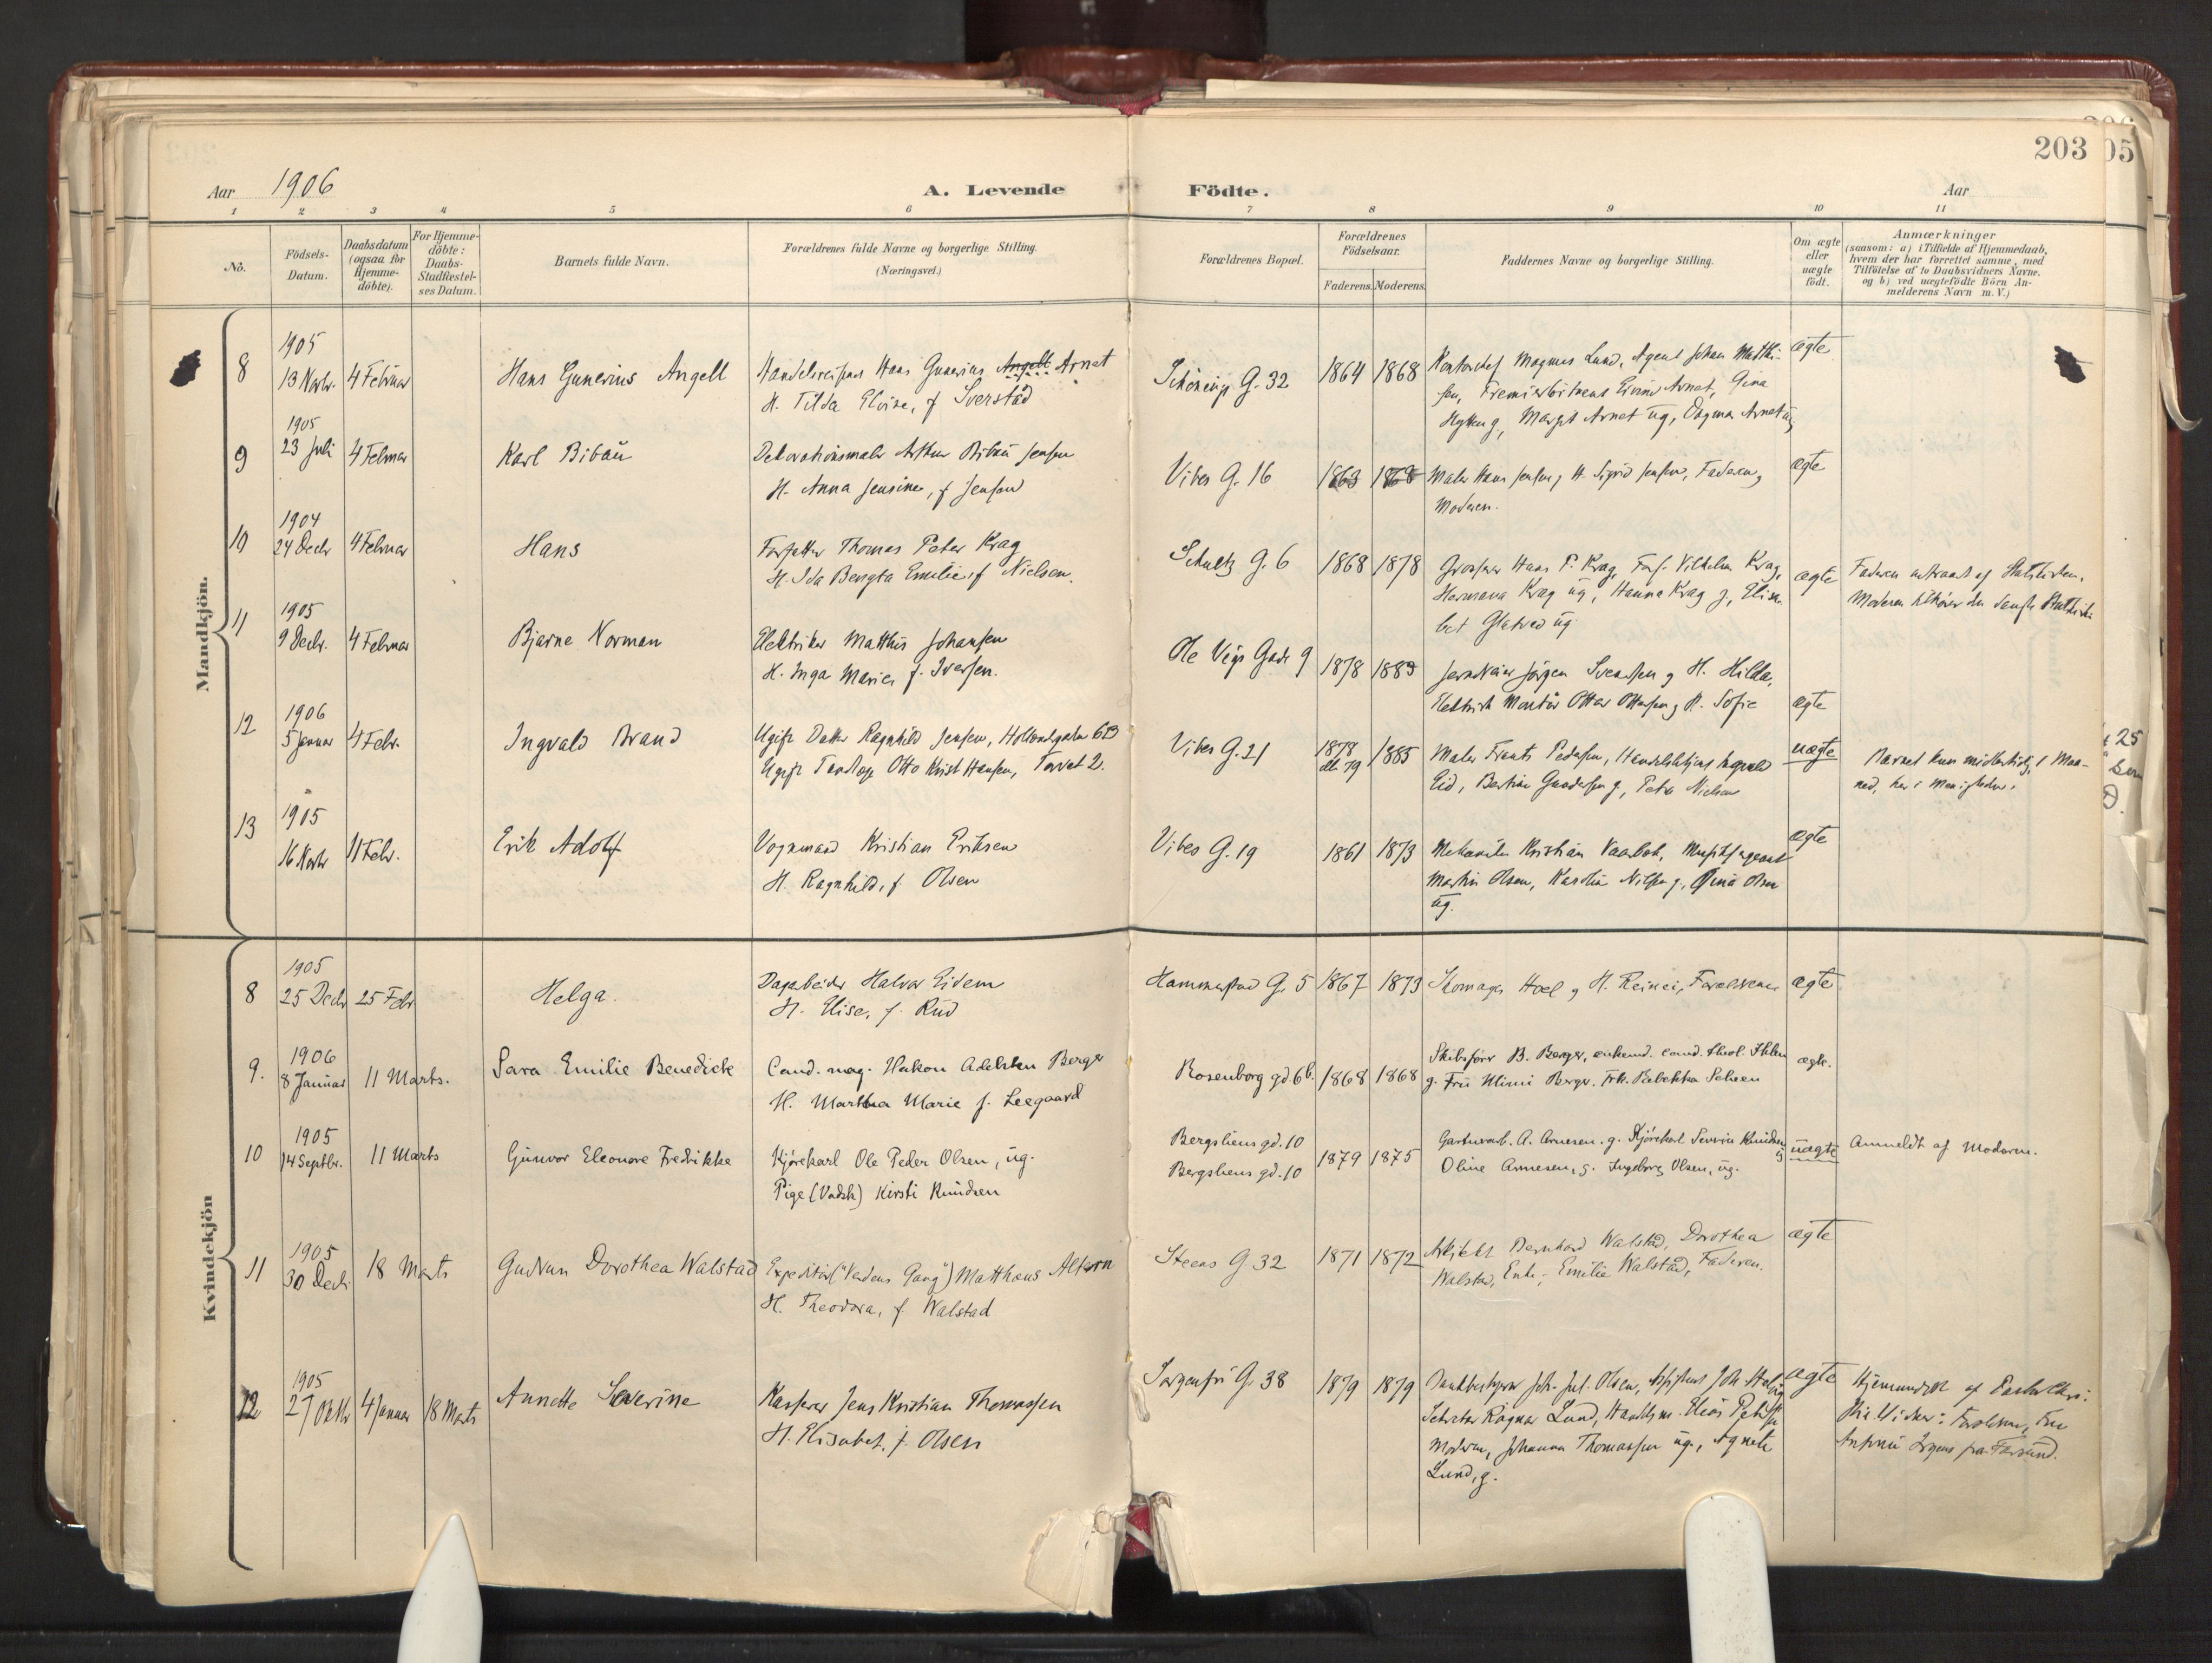 203
05
Aar 1906
A. Levende Födte.
Aar
1 2 3 4 5 6 7 8 9 10 11
No.
Födsels-Datum.
Daabsdatum (ogsaa for Hjemme-döbte).
For Hjemme-döbte: Daabs-Stadfæstel-ses Datum.
Barnets fulde Navn.
Forældrenes fulde Navne og borgerlige Stilling.
(Næringsvei.)
Forældrenes Bopæl.
Forældrenes Födselsaar.
Faderens. Moderens.
Faddernes Navne og borgerlige Stilling.
Om ægte eller uægte födt.
Anmærkninger
(saasom: a) i Tilfælde af Hjemmedaab,
hvem der har forrettet samme, med
Tilföielse af to Daabsvidners Navne.
og b) ved uægtefödte Börn An-
melderens Navn m. V.)
Mandkjön.
8
1905
13 Novbr. 4 Februar
Hans Gunerius Angell
Hans Gunerius Angell Arnet
H. Tilda Elvine, f Sverstad
G. 32
1864 1868
Magnus Lund, Agent Johan Matthi-
sen, Arnet, Gina
g, Margit Arnet ug, Dagmar Arnet ug
ægte
9
1905
23 Juli 4 Februar
Karl Bibau
Dekorationsmaler Arthur Bibau Jensen
H. Anna Jensine, f Jensen
Vibes G. 16
1863 1868
Maler Hans Jensen, H. Sigrid Jensen, Faderen,
Moderen.
ægte
10
1904
24 Decbr 4 Februar
Hans
Forfatter Thomas Peter Krag
H. Ida Bengta Emilie, f Nielsen.
Schultz G. 6
1868 1878
Grosserer Hans P. Krag, Forf. Vilhelm Krag,
Hermana Krag ug, Hanna Krag g, Elisa-
bet Glatved ug.
ægte
Faderen udtraadt af Statskirken,
Moderen tilhører den danske
11
1905
9 Decbr. 4 Februar
Bjarne Norman
Elektriker Matthis Johansen
H. Inga Marie, f. Iversen.
Ole Vigs Gade 9
1878 1883
Jørgen Svendsen g H. Hilda,
Elektrisk Montör Ottar Ottesen g H. Sofie
ægte
12
1906
5 Januar 4 Febr.
Ingvald Brand
Ugift Datter Ragnhild Jensen, 6B
Ugift Otto Krist Hansen, Torvet 2.
Vibes G. 21
1878 79 1885
Maler Frants Pedersen, Ingvald
Eid, Bertine Gundersen g, Petra Nielsen
uægte
Barnet kun midlertidig, 1 Maa-
ned, her i Menigheden.
13
1905
16 Novbr 11 Febr.
Erik Adolf
Vognmand Kristian Eriksen
H. Ragnhild, f Olsen
Vibes G. 19
1861 1873
Mekaniker Kristian Vaarbok,
Martin Olsen, Karoline Nilsen g, Gina Olsen
ug.
ægte
Kvindekjön
8
1905
25 Decbr 25 Febr
Helga.
Dagarbeider Halvor Eidem
H. Elise, f. Rud
Hammerstad G. 5
1867 1873
Skomager Hoel g H. Forældrene
ægte
9.
1906
8 Januar 11 Marts.
Sara Emilie Benedicte
Cand. mag. Hakon Adelsten Berger
H. Martha Marie f. Leegaard
Rosenborg gd. 6b.
1868 1868
Skibsfører B. Berger, enkemd. cand. theol. Ihlen
g. Fru Mimi Berger. Frk. Rebekka Scheen
ægte.
10
1905
14 Septbr. 11 Marts
Gunvor Eleonore Fredrikke
Kjørekarl Ole Peder Olsen, ug.
Pige (Vadsk) Kirsti Knudsen
Bergsliens gd. 10
Bergsliens gd. 10
1879 1875
Gartnerarb. A. Arnesen. g. Kjørekarl Severin Knudsen ug
Oline Arnesen, g. Ingeborg Olsen, ug.
uægte
Anmeldt af Moderen.
11
1905
30 Decbr 18 Marts
Gudrun Dorothea Walstad
Expeditör ("Verdens Gang") Matthæus Altern
H. Theodora, f. Walstad
Steens G. 32
1871 1872
Arkitekt Bernhard Walstad, Dorothea
Walstad, Enke, Emilie Walstad, Faderen.
ægte
12
1905
27 Oktbr 4 Januar 18 Marts
Annette Severine
Kasserer Jens Kristian Thomassen
H. Elisabet, f. Olsen
Sorgenfri G. 38
1879 1879
Bankbestyrer Joh. Jul. Olsen, Assistent Joh.
Sekretær Ragnar Lund, Elias
Moderen, Johanna Thomassen ug., Agnete
Lund, g.
ægte
Hjemmedøbt af Pastor
Vidner: Forældrene, Fru
fra Farsund.
25